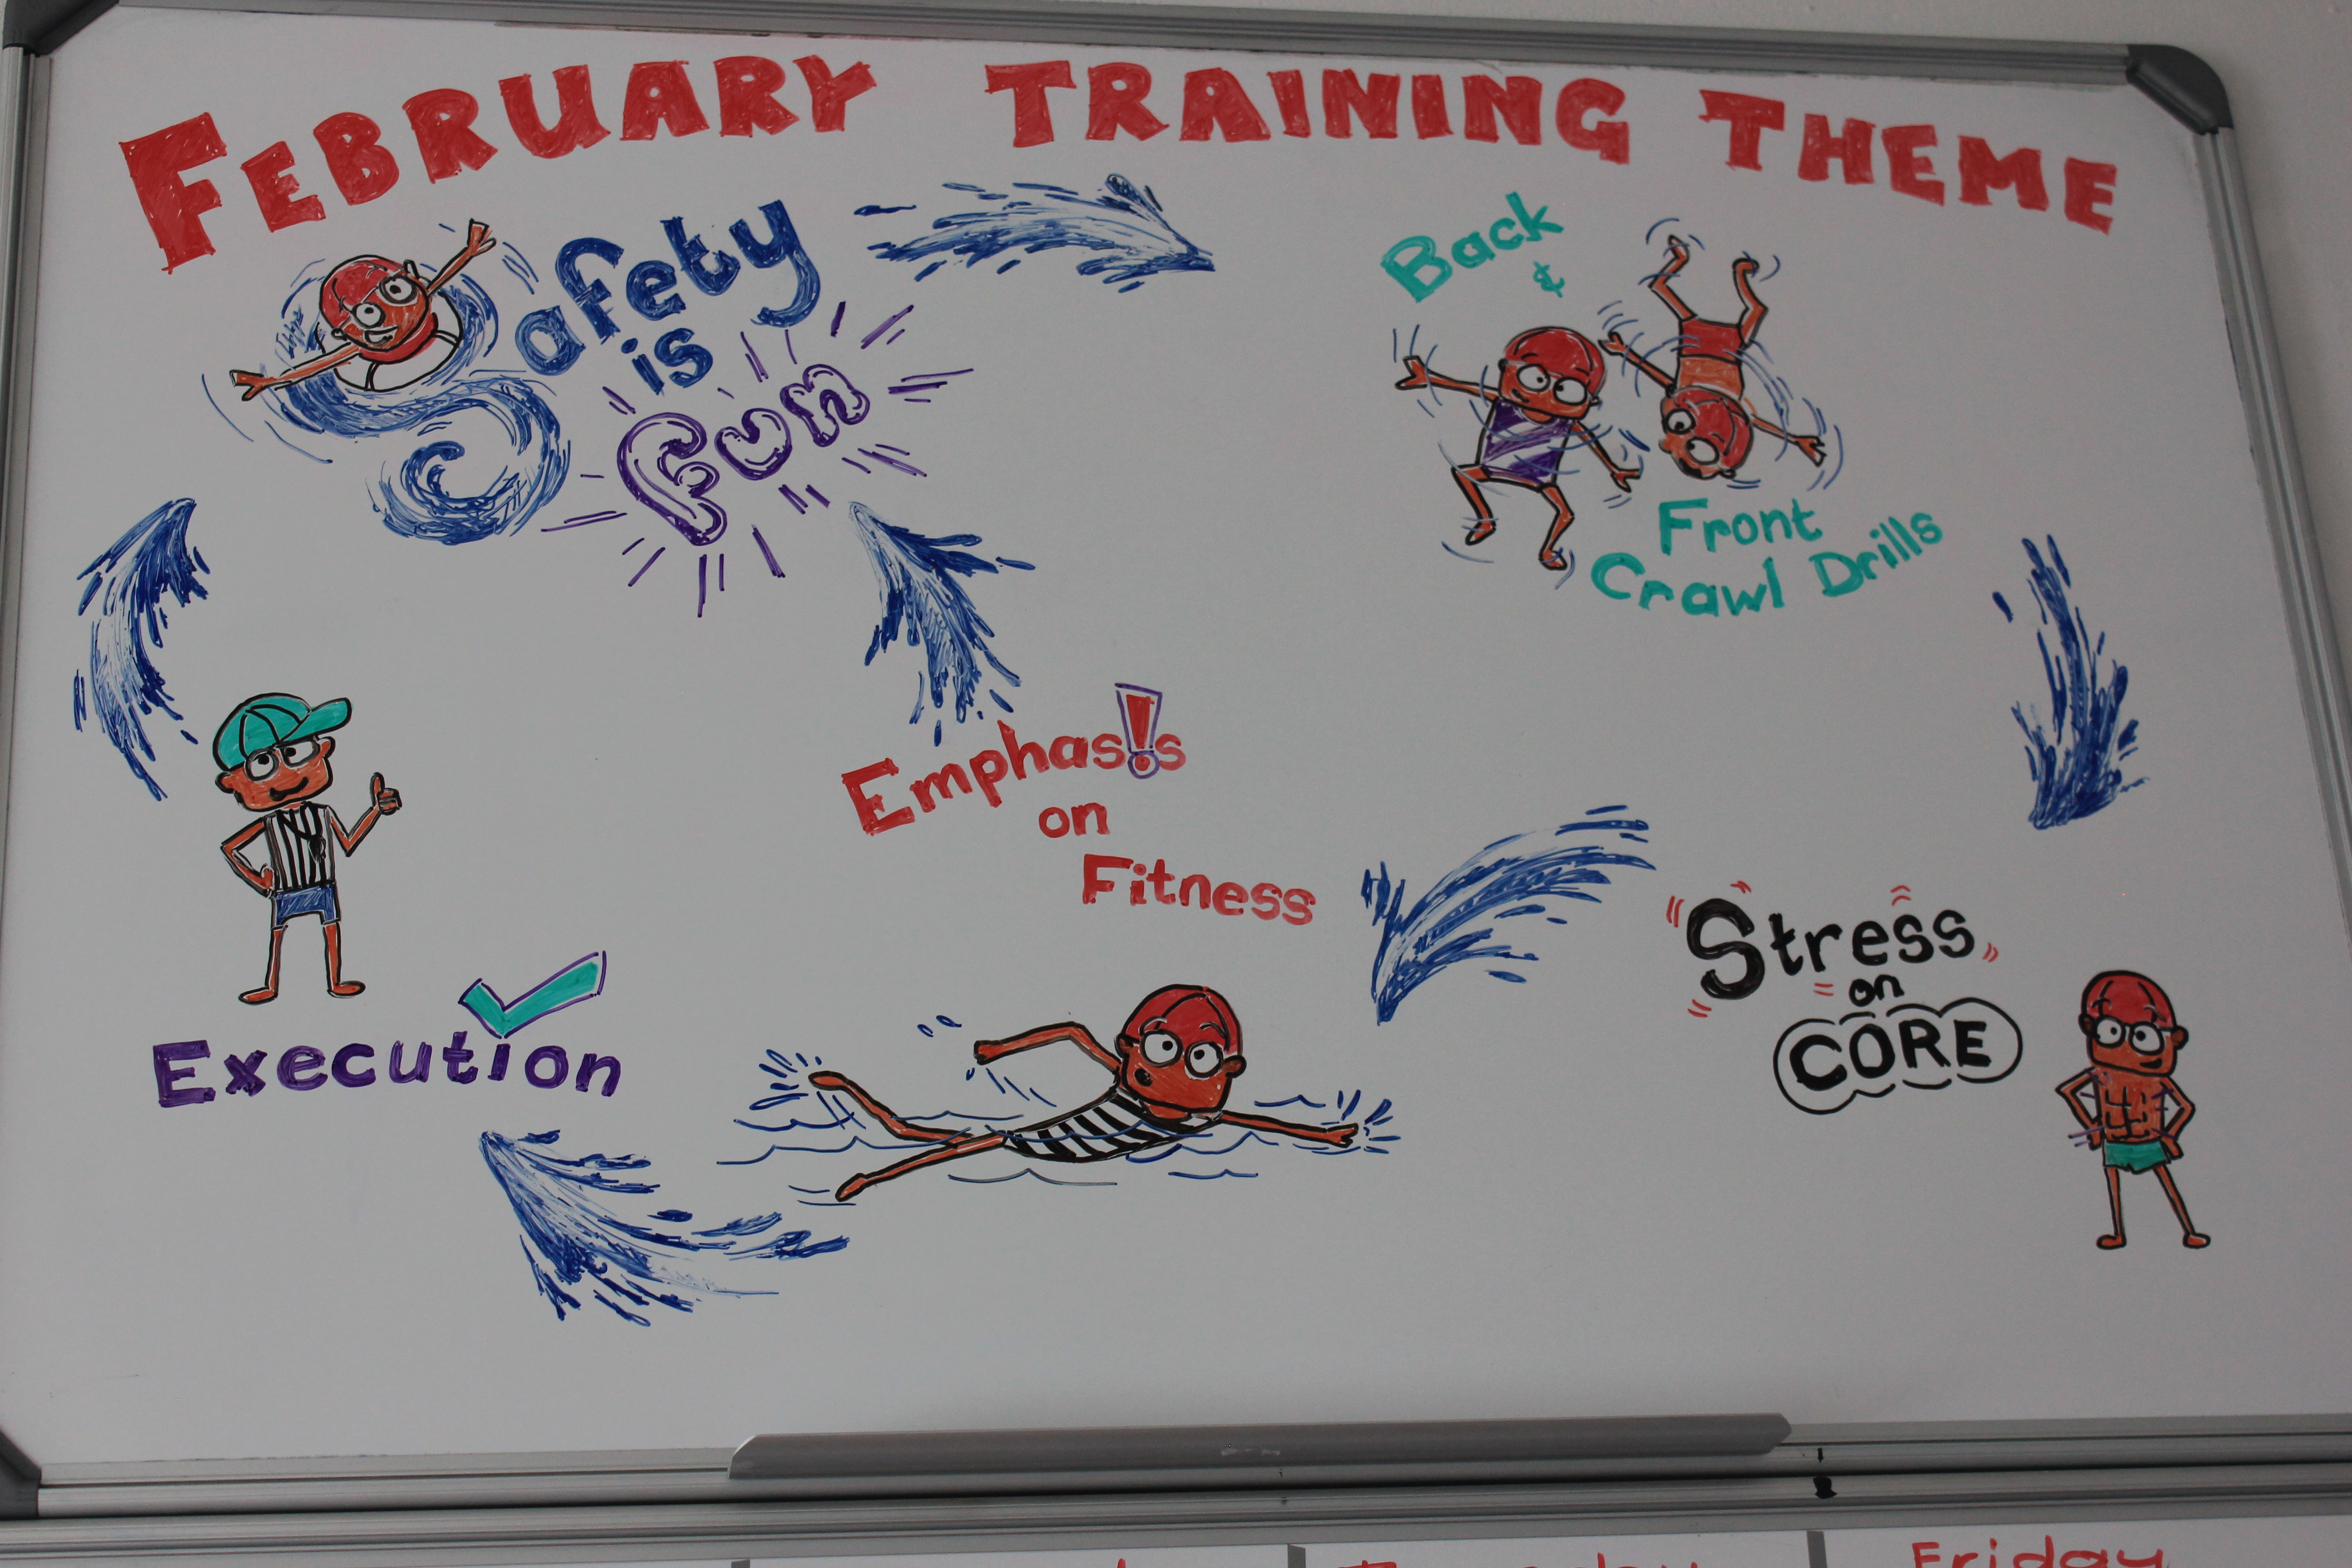 FEBRUARY TRAINING THEME
Safety
is
Fun
Back
&
Front
Crawl Drills
Stress
on
CORE
Emphasis
on
Fitness
Execution
Friday